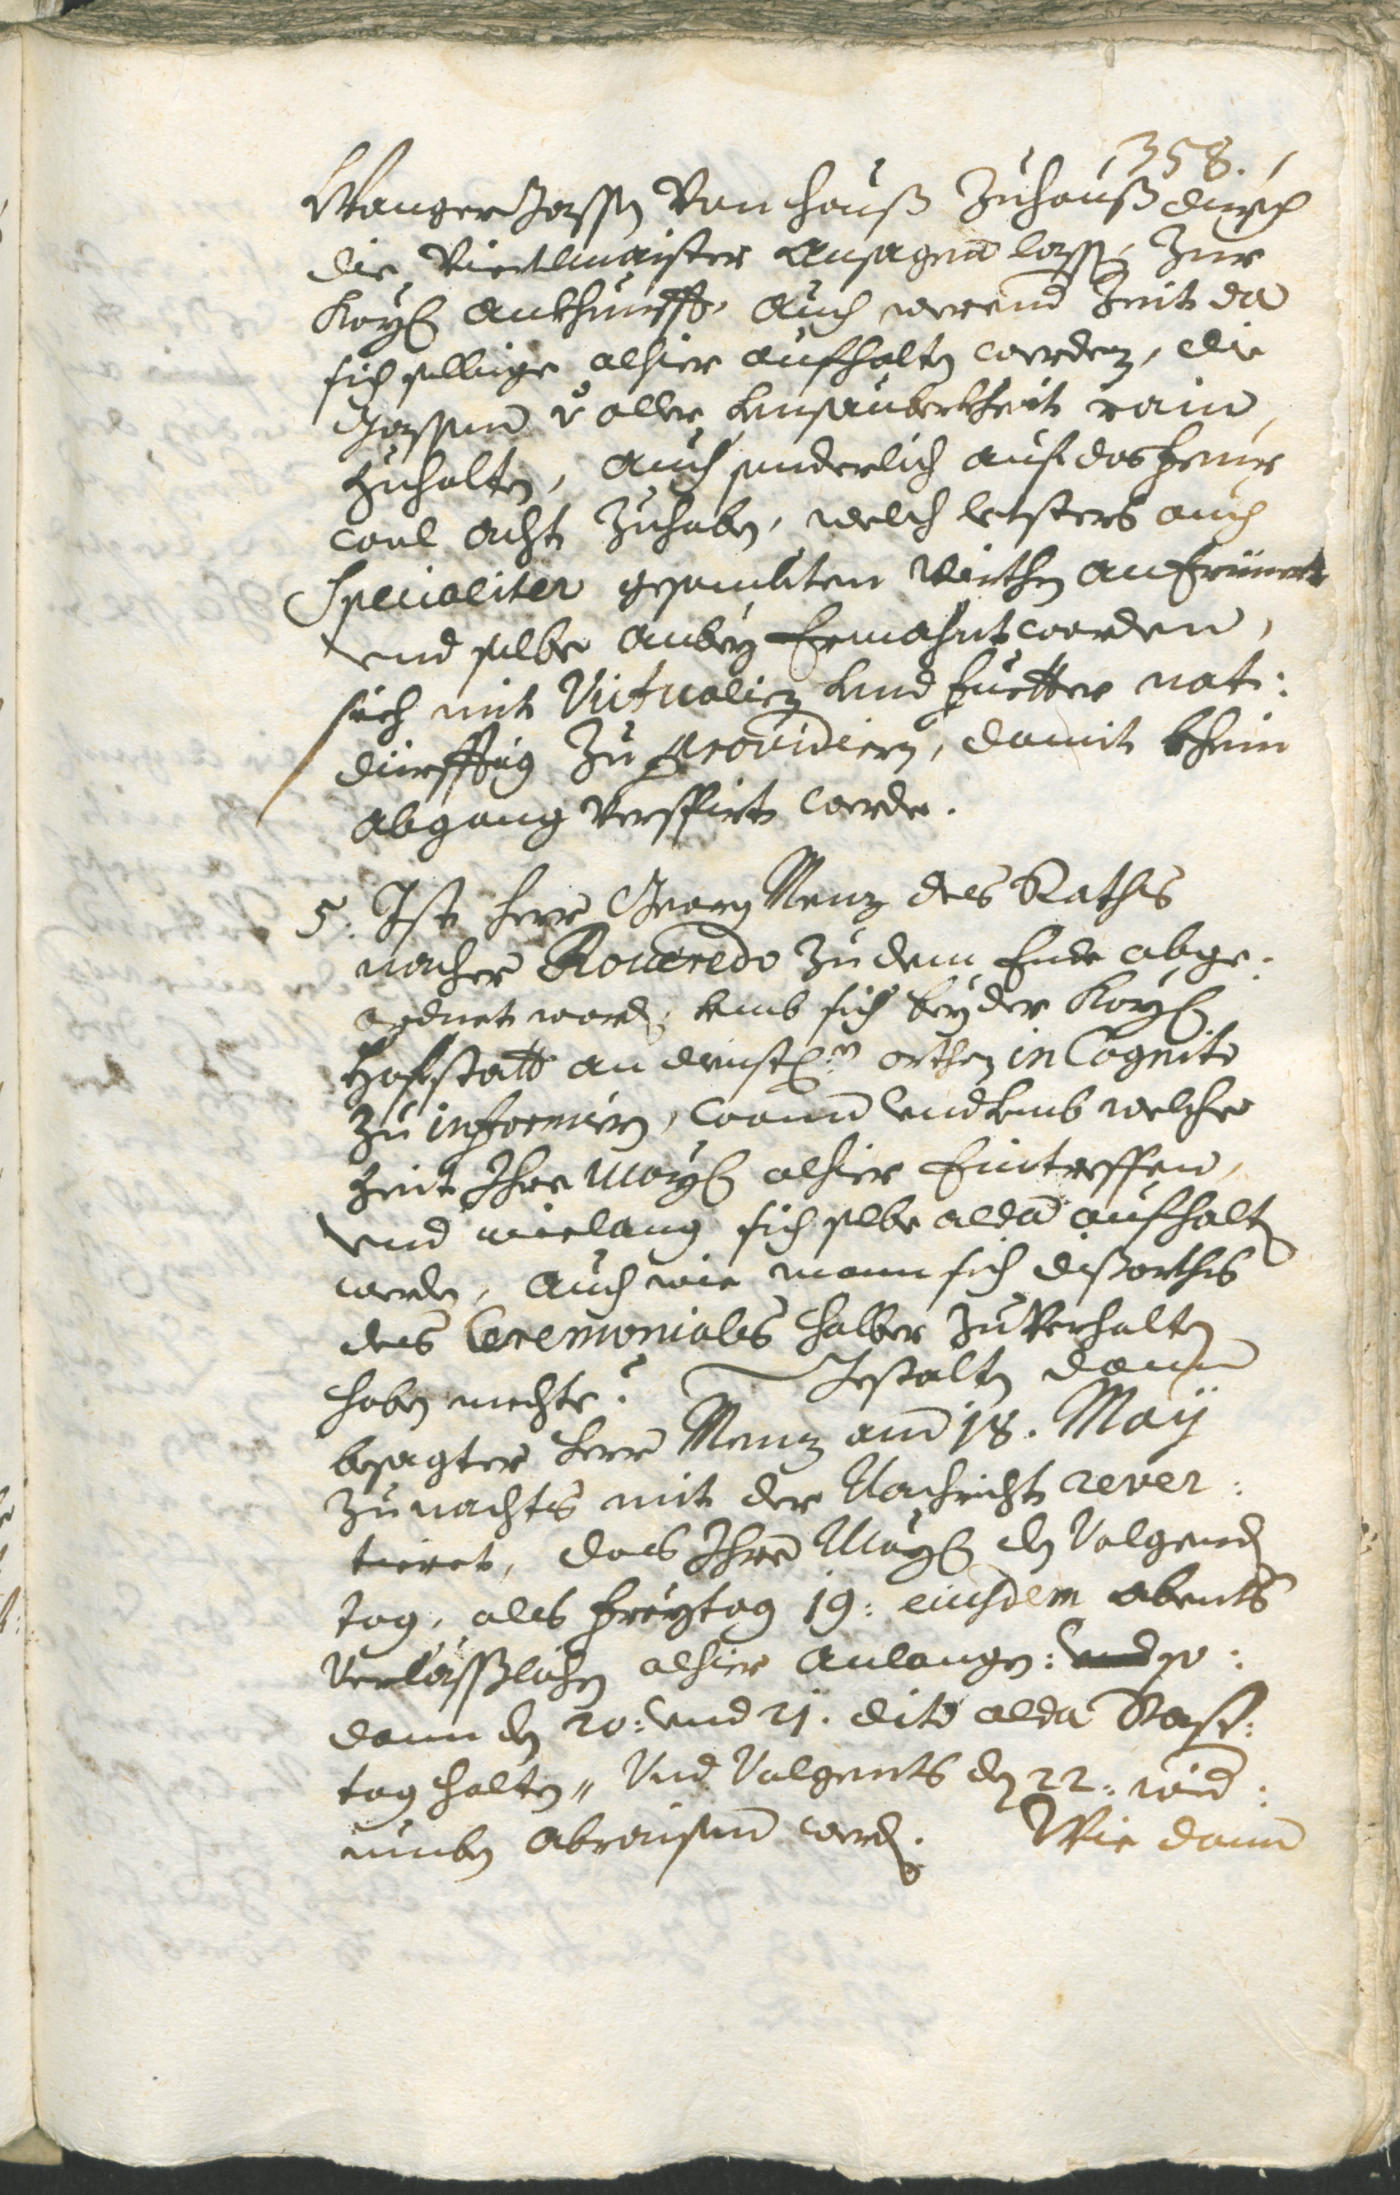 358.
Wanger Gassen Von hauß Zuhauß durch
die Viertlmaister Ansagen lassen, Zur
Kayß Ankhunfft, Auch werend Zeit da
sich selbige alhier aufhalten werden, die
Gassen v aller Unsauberkheit rain
zuhalten, Auch sonderlich auf das feur
woll acht Zuhaben, welch letsters auch
Specialiter gesambten Wirthen
vnd selbe anbey Ermahnt worden,
sich mit Victualien vnd fuetter not:
dürfftig Zu Providiern, damit khein
abgang verspirt werde.
5: Ist herr Georg Menz des Raths
nacher Roueredo zu dem Ende abge:
ordnet word, vmb sich bey der Kayß
Hofstatt an orthen in Cognito
zu informiern, wann vnd vmb welche
Zeit Ihre Mayß alhier Eintreffen,
vnd wielang sich selbe alda aufhalten
werden, Auch wie mann sich dißorths
des Ceremonials halber zuverhalten
haben mechte? Gestalten dann
besagter herr Menz am 18. Maÿ
zunachts mit der Nachricht rever:
tieret, das Ihre Mayß den Volgend
tag, als freytag 19: eiusdem abents
Verläßlichen alhier anlangen:
dann den 20: vnd 21. dito alda Rast:
tag halten, Vnd Volgents den 22: wid:
umben abraisen werd. Wie dann